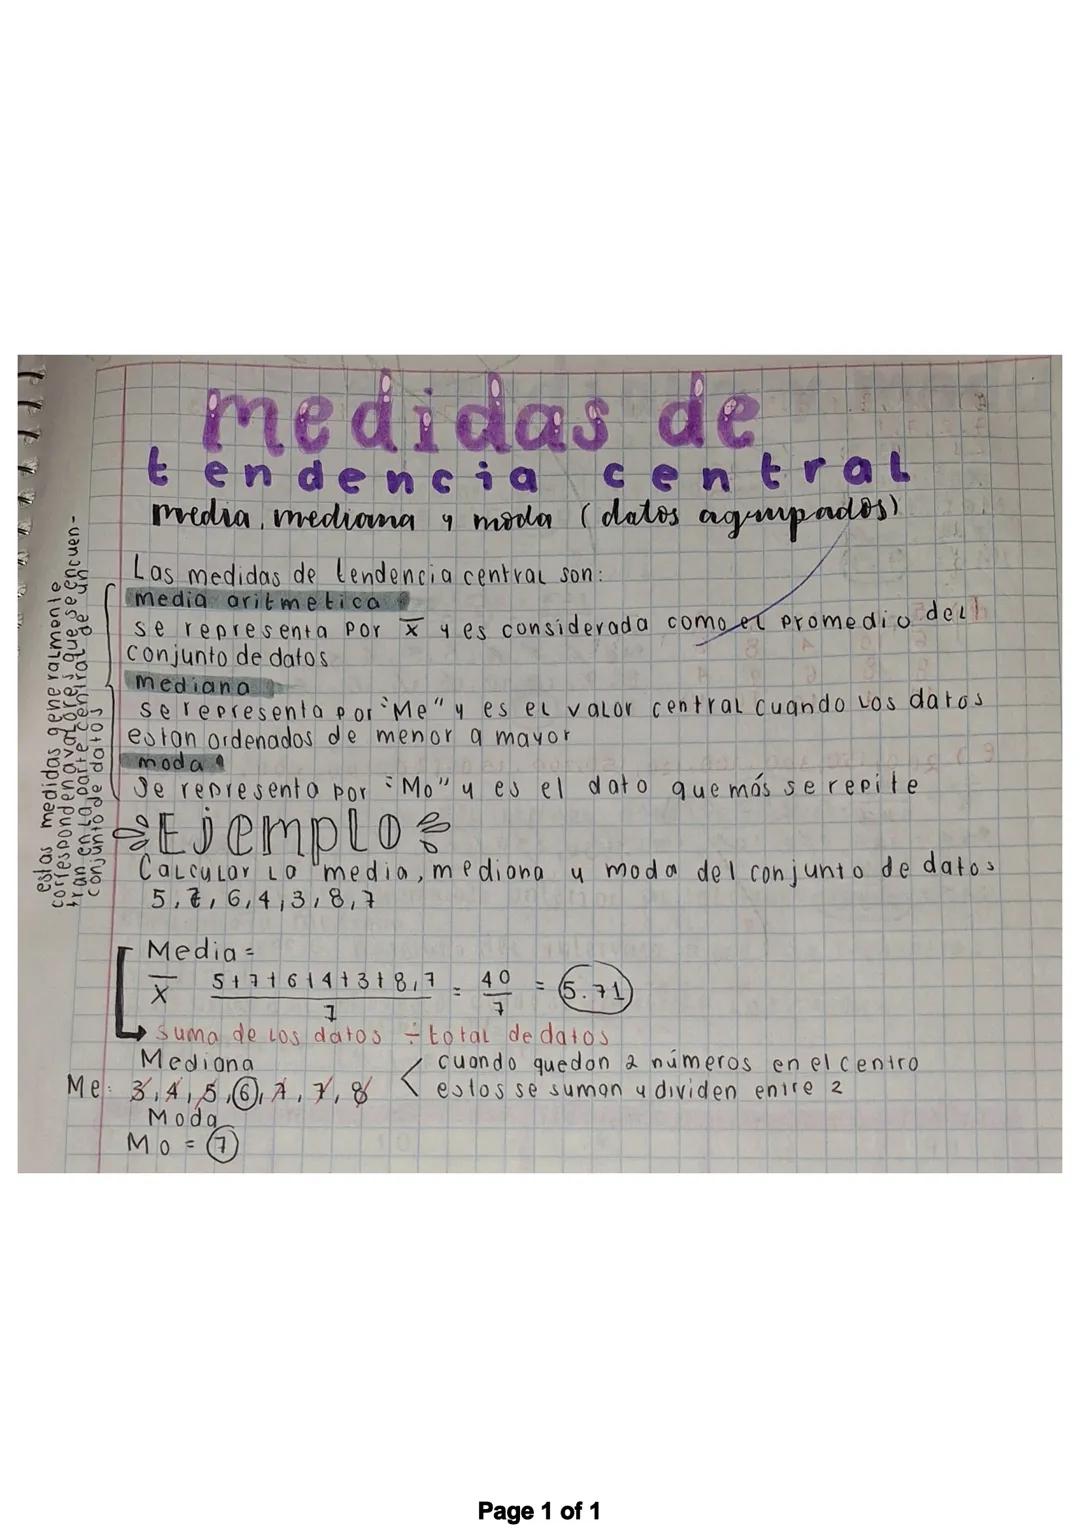 medidas de
tendencia central
media, mediana y moda (datos agrupados)
estas medidas generalmente
corresponden a valores que se encuen-
tran en la parte central de un
conjunto de datos
Las medidas de tendencia central son:
media aritmetica
se representa por x̅ y es considerada como el promedio del
conjunto de datos
mediana
se representa por "Me" y es el valor central cuando los datos
estan ordenados de menor a mayor
moda
Se representa por "Mo" y es el dato que más se repite
Ejemplo
Calcular la media, mediana y moda del conjunto de datos
5, 7, 6, 4, 3, 8, 7
Media =
x̅ 5+7+6+4+3+8,7 = 40 = 5.71
7 7
suma de los datos ÷ total de datos
Mediana
Me: 3, 4, 5, 6, 7, 7, 8
cuando quedan 2 números en el centro
estos se suman y dividen entre 2
Moda
Mo = 7
Page 1 of 1